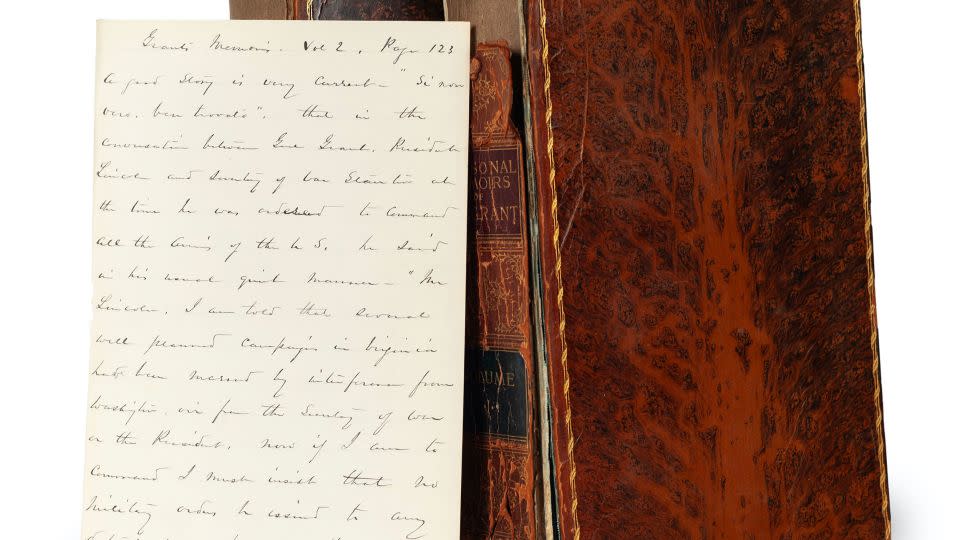 Grant's Memoirs. Vol 2, Page 123
A good story is very current - "Si non
vero, ben trovato", that in the
conversation between Genl Grant, President
Lincoln and Secretary of War Stanton at
the time he was ordered to command
all the Armies of the U.S. he said
in his usual quiet manner - "Mr
Lincoln, I am told that several
well planned campaigns in Virginia
have been marred by interference from
Washington, from the Secretary of War
or the President. Now if I am to
command I must insist that no
military orders be issued to any
SONAL
MOIRS
OF
GRANT
UME